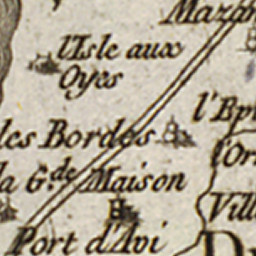 Mazan
l'Isle aux
Oyes
l'Ep
les Bordes
l'Or
la G.de Maison
Vill
Port d'Avi